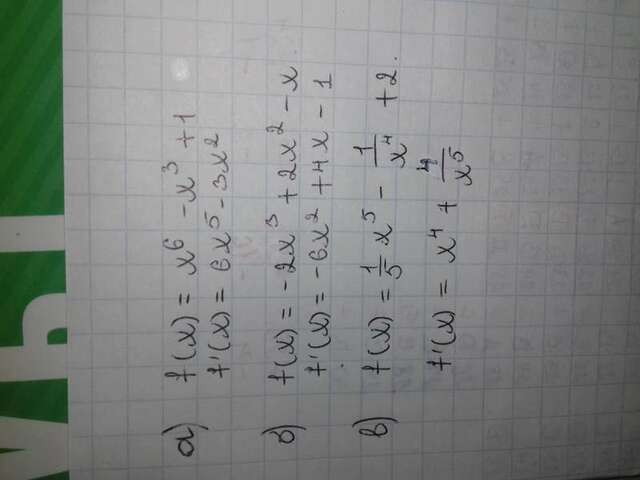 а) f(x) = x⁶ - x³ + 1
f'(x) = 6x⁵ - 3x²
б) f(x) = -2x³ + 2x² - x.
f'(x) = -6x² + 4x - 1
в) f(x) = 1/5 x⁵ - 1/x⁴ + 2.
f'(x) = x⁴ + 4/x⁵